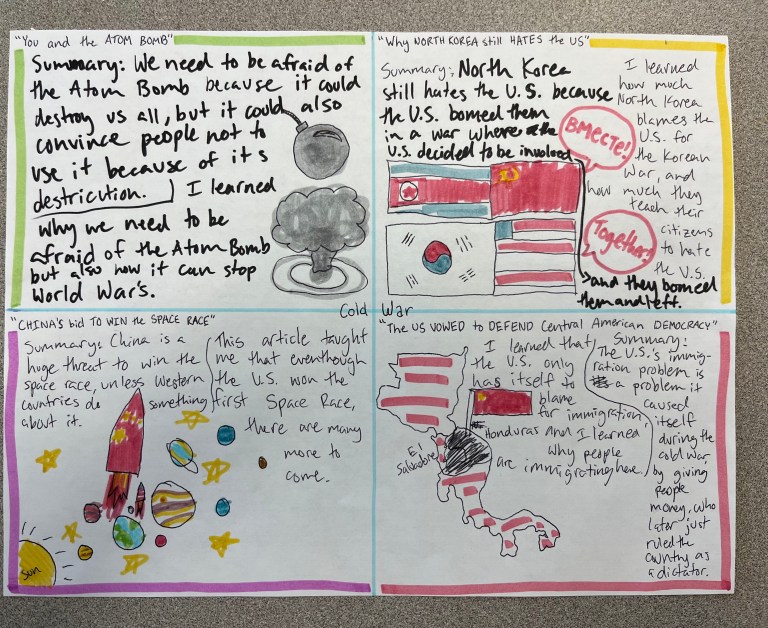 "You and the ATOM BOMB"
Summary: We need to be afraid of
the Atom Bomb because it could
destroy us all, but it could also
convince people not to
use it because of its
destricution. I learned
why we need to be
afraid of the Atom Bomb
but also how it can stop
World War's.
"Why NORTH KOREA still HATES the US"
Summary: North Korea
still hates the U.S. because
the U.S. bomed them
in a war where the
U.S. decided to be involved
and they bomed
them and left.
I learned
how much
North Korea
blames the
U.S. for
the Korean
War, and
how much they
teach their
citizens
to hate
the U.S.
BMECTE!
Together!
Cold War
"CHINA's bid TO WIN the SPACE RACE"
Summary: China is a
huge threat to win the
space race, unless Western
countries do something
about it.
This article taught
me that eventhough
the U.S. won the
first Space Race,
there are many
more to
come.
Sun
"The US VOWED to DEFEND Central American DEMOCRACY"
I learned that
the U.S. only
has itself to
blame
for immigration,
Honduras and I learned
why people
are immigrating here.
El
Salvabore
Summary:
The U.S.'s immig-
ration problem is
a problem it
caused
itself
during the
cold war
by giving
people
money, who
later just
ruled the
country as
a dictator.